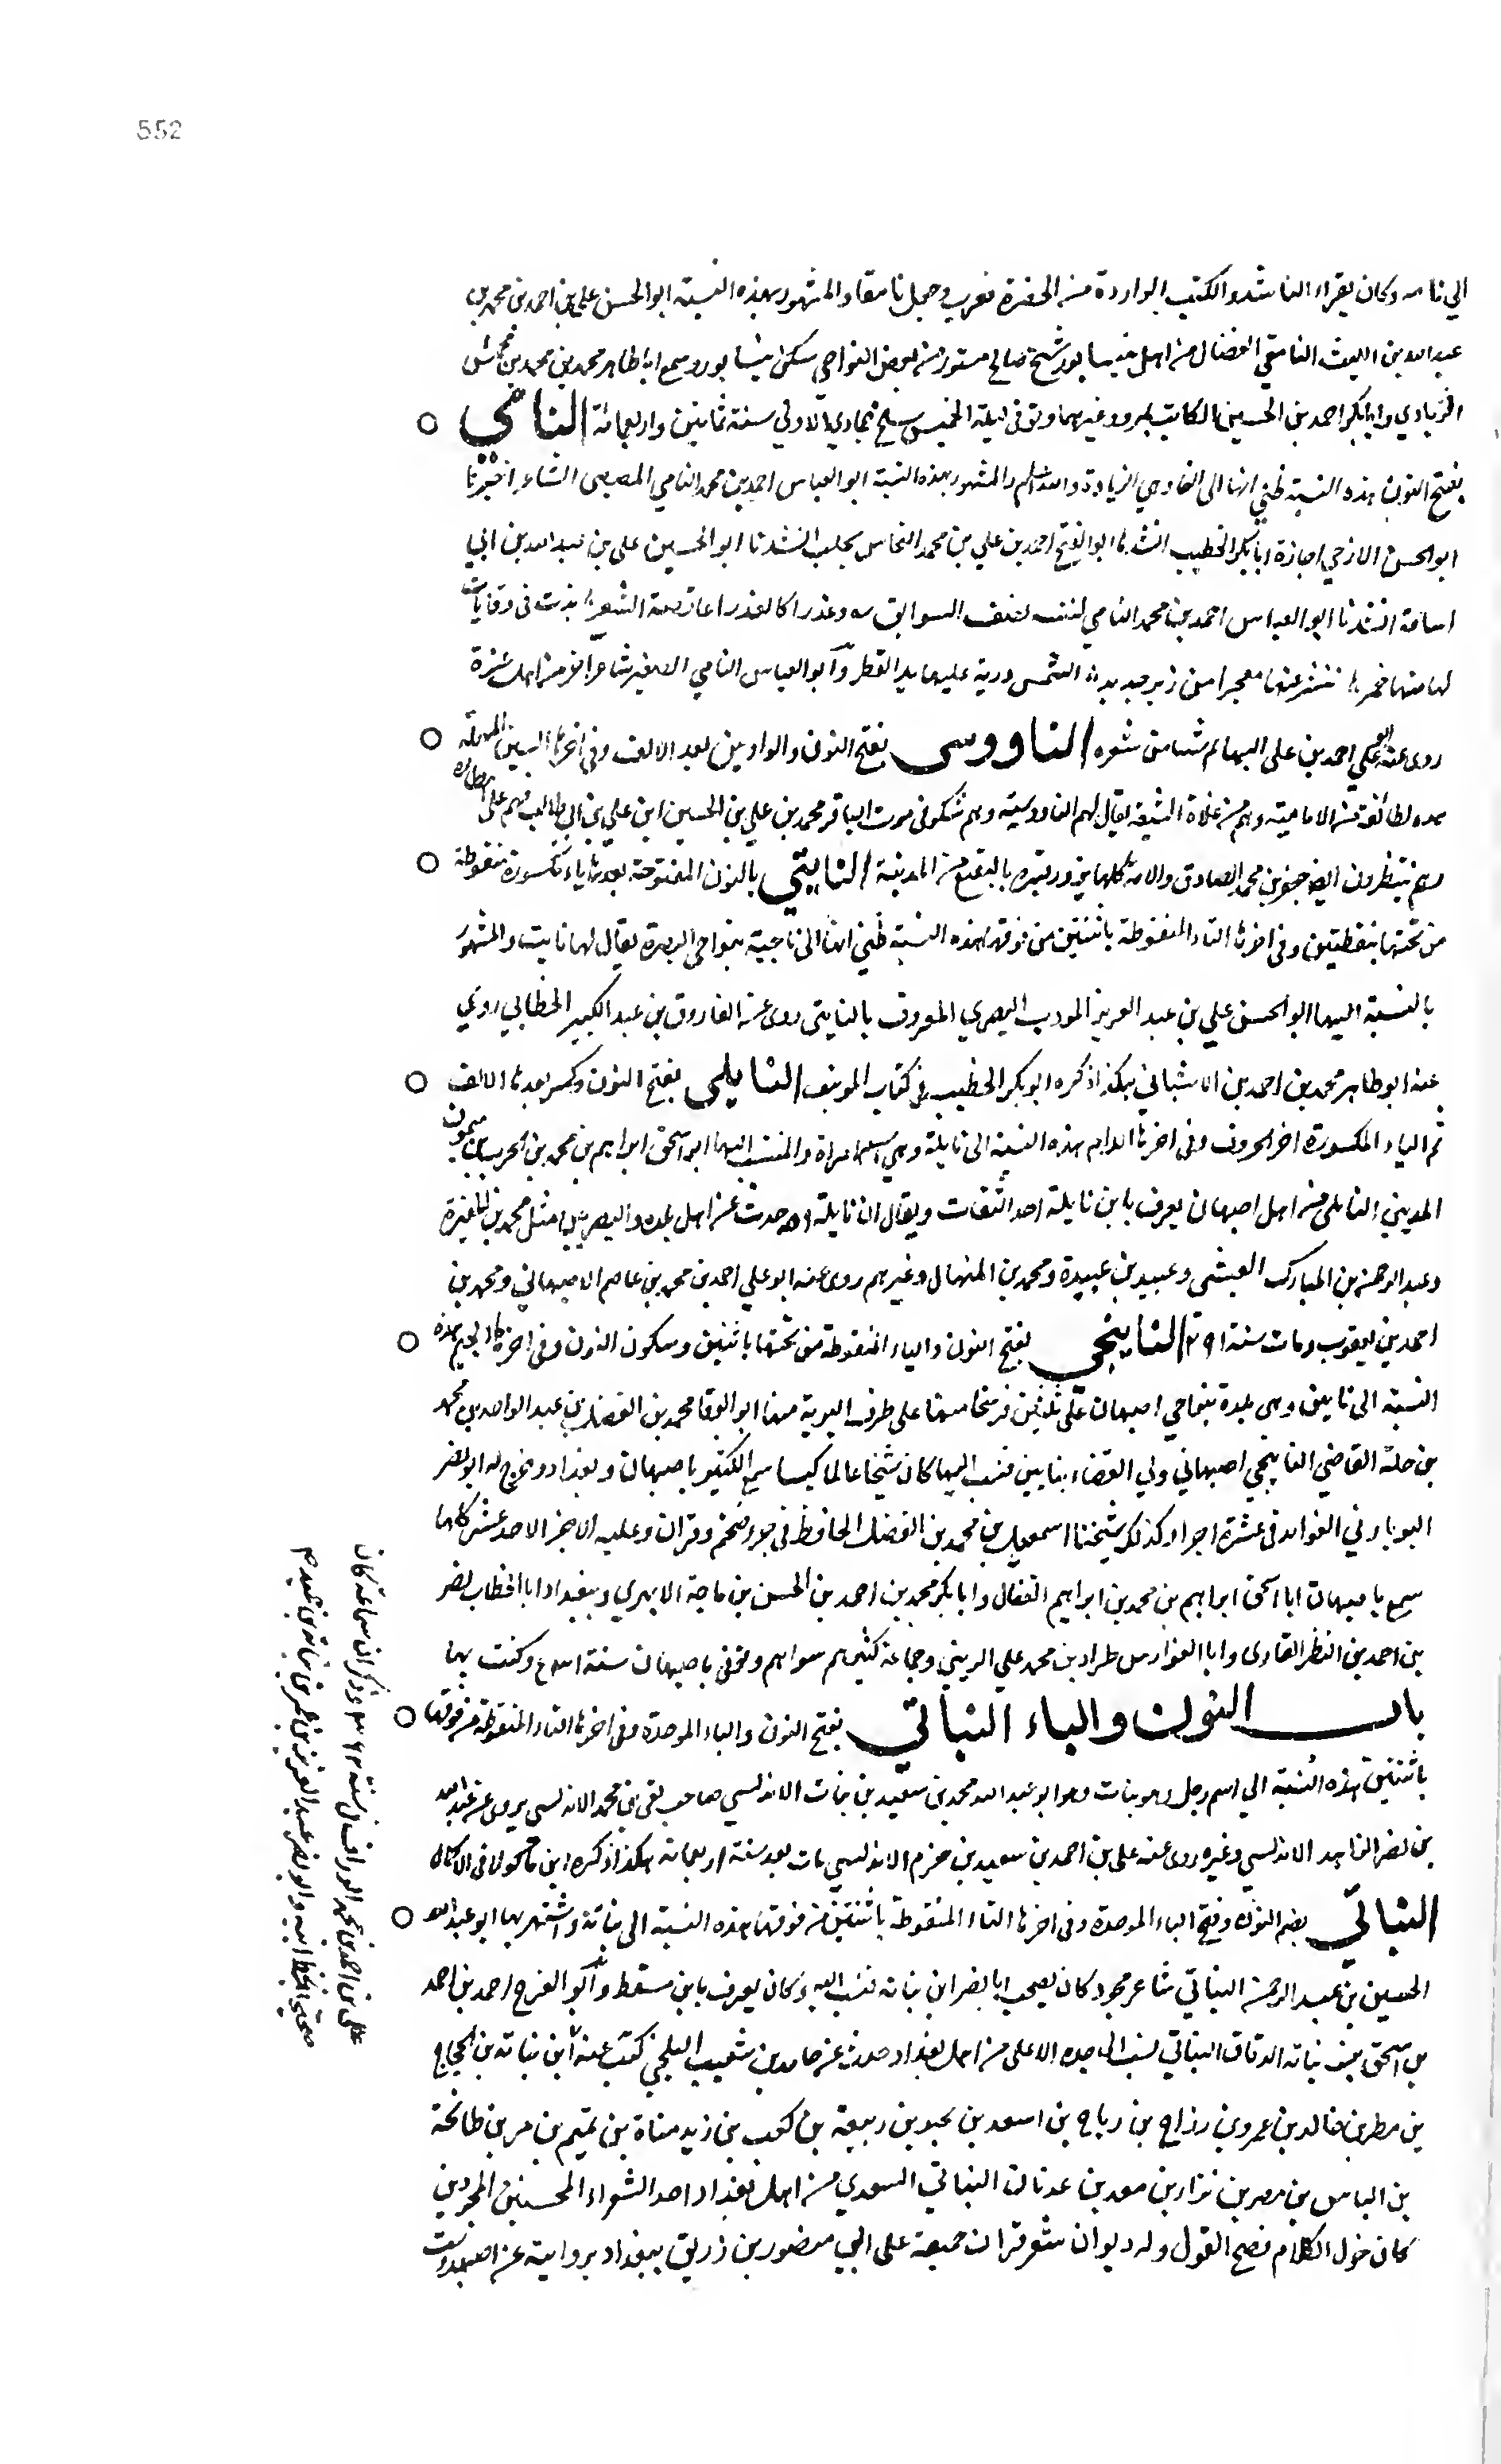 552
الي نامه وكان يقراء الناشد والكتب الواردة من الحضرة فعرب وجعل نامقا والمشهور بهذه النسبة ابو الحسن علي بن احمد بن محمد بن
عبد الله بن الليث النامقي الفضال من اهل نيسابور شيخ صالح مستور من بعض النواحي سكن نيسابور وسمع ابا طاهر محمد بن محمد بن محمش
الزيادي وابا بكر احمد بن الحسين الكاتب بمرو وغيرهما وتوفى ليلة الخميس سلخ جمادي الاولى سنة ثمانين واربعمائة النامي
بفتح النون هذه النسبة ظني انها الى النماء وهي الزيادة والله اعلم والمشهور بهذه النسبة ابو العباس احمد بن محمد النامي المصيصى الشاعر اخبرنا
ابو الحسن الازجي اجازة ابا بكر الخطيب انشدنا ابو الفتح احمد بن علي بن محمد النحاس بحلب انشدنا ابو الحسين على بن عبد الله بن ابي
اسامة انشدنا ابو العباس احمد بن محمد النامي لنفسه
لها منها خمرها الشمس ورية عليها يد القطر وابو العباس النامي الصغير شاعر اخر من اهل غزة
روى عنه ابو علي احمد بن على شيئا من شعره الناووسى بفتح النون والواوين بعد الالف وفى اخرها السين المهملة
هذه لطائفة من الامامية وهم من غلاة الشيعة يقال لهم الناووسية وهم شكو فى موت الباقر محمد بن علي بن الحسين ابن علي بن ابي طالب فهم على انتظاره
وهم ينتظرون ايضا جعفر بن محمد الصادق والامة كلها يزورون قبره بالبقيع من المدينة النايتي بالنون المفتوحة بعدها ياء مكسورة منقوطة
من تحتها بنقطتين وفى اخرها التاء المنقوطة باثنتين من فوقها هذه النسبة ظني انها الى ناحية بنواحي البصرة يقال لها نايت والمشهور
بالنسبة اليها ابو الحسن علي بن عبد العزيز المودب البصري المعروف بالنايتى روى عن الفاروق بن عبد الكبير الخطابي روي
عنه ابو طاهر محمد بن احمد بن الاشناني هكذا ذكره ابو بكر الخطيب في كتاب المونف النايلى بفتح النون وكسر بعدها الالف
ثم الياء المكسورة اخر الحروف وفى اخرها اللام هذه النسبة الى نايلة وهي اسم امراة والمنتسب اليها ابو اسحق ابراهيم بن محمد بن الحرب بن ميمون
المديني النايلى من اهل اصبهان يعرف بابن نايلة احد الثقات ويقال ان نايلة امه حدث عن اهل بلده والبصريين مثل محمد بن المغيرة
وعبد الرحمن بن المبارك العيشى وعبيد بن عبيدة ومحمد بن المنهال وغيرهم روى عنه ابو علي احمد بن محمد بن عاصم الاصبهاني ومحمد بن
احمد بن يعقوب ومات سنة ٢٩١ النايبنجي بفتح النون والياء المنقوطة من تحتها باثنتين وسكون النون وفى اخرها الجيم هذه
النسبة الى نايين وهى بلدة بنواحي اصبهان على ثلثين فرسخا منها على طرف البرية منها ابو الوفا محمد بن الفضل بن عبد الواحد بن محمد
بن حلة القاضي النايينجي اصبهاني ولي القضاء بنايين فنسب اليها كان شيخا عالما كيسا سمع الكثير باصبهان وبغداد وخرج له ابو نصر
اليونارتي الفوايد فى عشرة اجزاء وكذلك شيخنا اسمعيل بن محمد بن الفضل الحافظ فى جزء ضخم وقران وعليه الاجزا الاحد عشر كلها
سمع باصبهان ابا اسحق ابراهيم بن محمد بن ابراهيم القفال وابا بكر محمد بن احمد بن الحسن بن ماجة الابهري وببغداد ابا الخطاب نصر
بن احمد بن النظر القارى وابا الفوارس طراد بن محمد علي الزينبي وجماعة كثيرهم سواهم وتوفى باصبهان سنة وكنت بها
باب النون والباء النباتي بفتح النون والباء الموحدة وفى اخرها التاء المنقوطة من فوقها
باثنتين هذه النسبة الي اسم رجل وهو نبات وهو ابو عبد الله محمد بن سعيد بن نبات الاندلسي صاحب بقى بن محمد الاندلسى يروى عن عبد الله
بن نصر الزاهد الاندلسي وغيره روى عنه على بن احمد بن سعيد بن حزم الاندلسي مات بعد سنة اربعمائة هكذا ذكره ابن ماكولا فى الاكمال
النباتي بضم النون وفتح الباء الموحدة وفى اخرها التاء المنقوطة باثنتين من فوقها هذه النسبة الى نباتة واشتهر بها ابو عبد الله
الحسين بن عبد الرحمن النباتي شاعر مجود كان يصحب ابا نصر ابن نباته فنسب اليه وكان يعرف بابن مسقط وابو الفرج احمد بن احمد
بن اسحق بن نباته الدقاق النباتي نسب الى جده الاعلى من اهل بغداد حدث عن حامد بن شعيب البلخي كتب عنه ابن نباته بن الحجاج
بن مطر بن خالد بن عمرو بن رزاح بن رياح بن اسعد بن بجير بن ربيعة بن كعب بن زيد مناة بن تميم بن مر بن طابخة
بن الياس بن مضر بن نزار بن معد بن عدنان النباتي السعدي من اهل بغداد احد الشعراء المحسنين المجودين
كان جزل الكلام فصح القول وله ديوان شعر قران جميعه على ابي منصور بن زريق ببغداد بروايته عن
علي بن احمد بن محمد الوراق سنة وذكر ان سماعه كان
صحيحا بخط ابيه وابو نصر عبد العزيز بن عمر بن نباته بن حميد بن